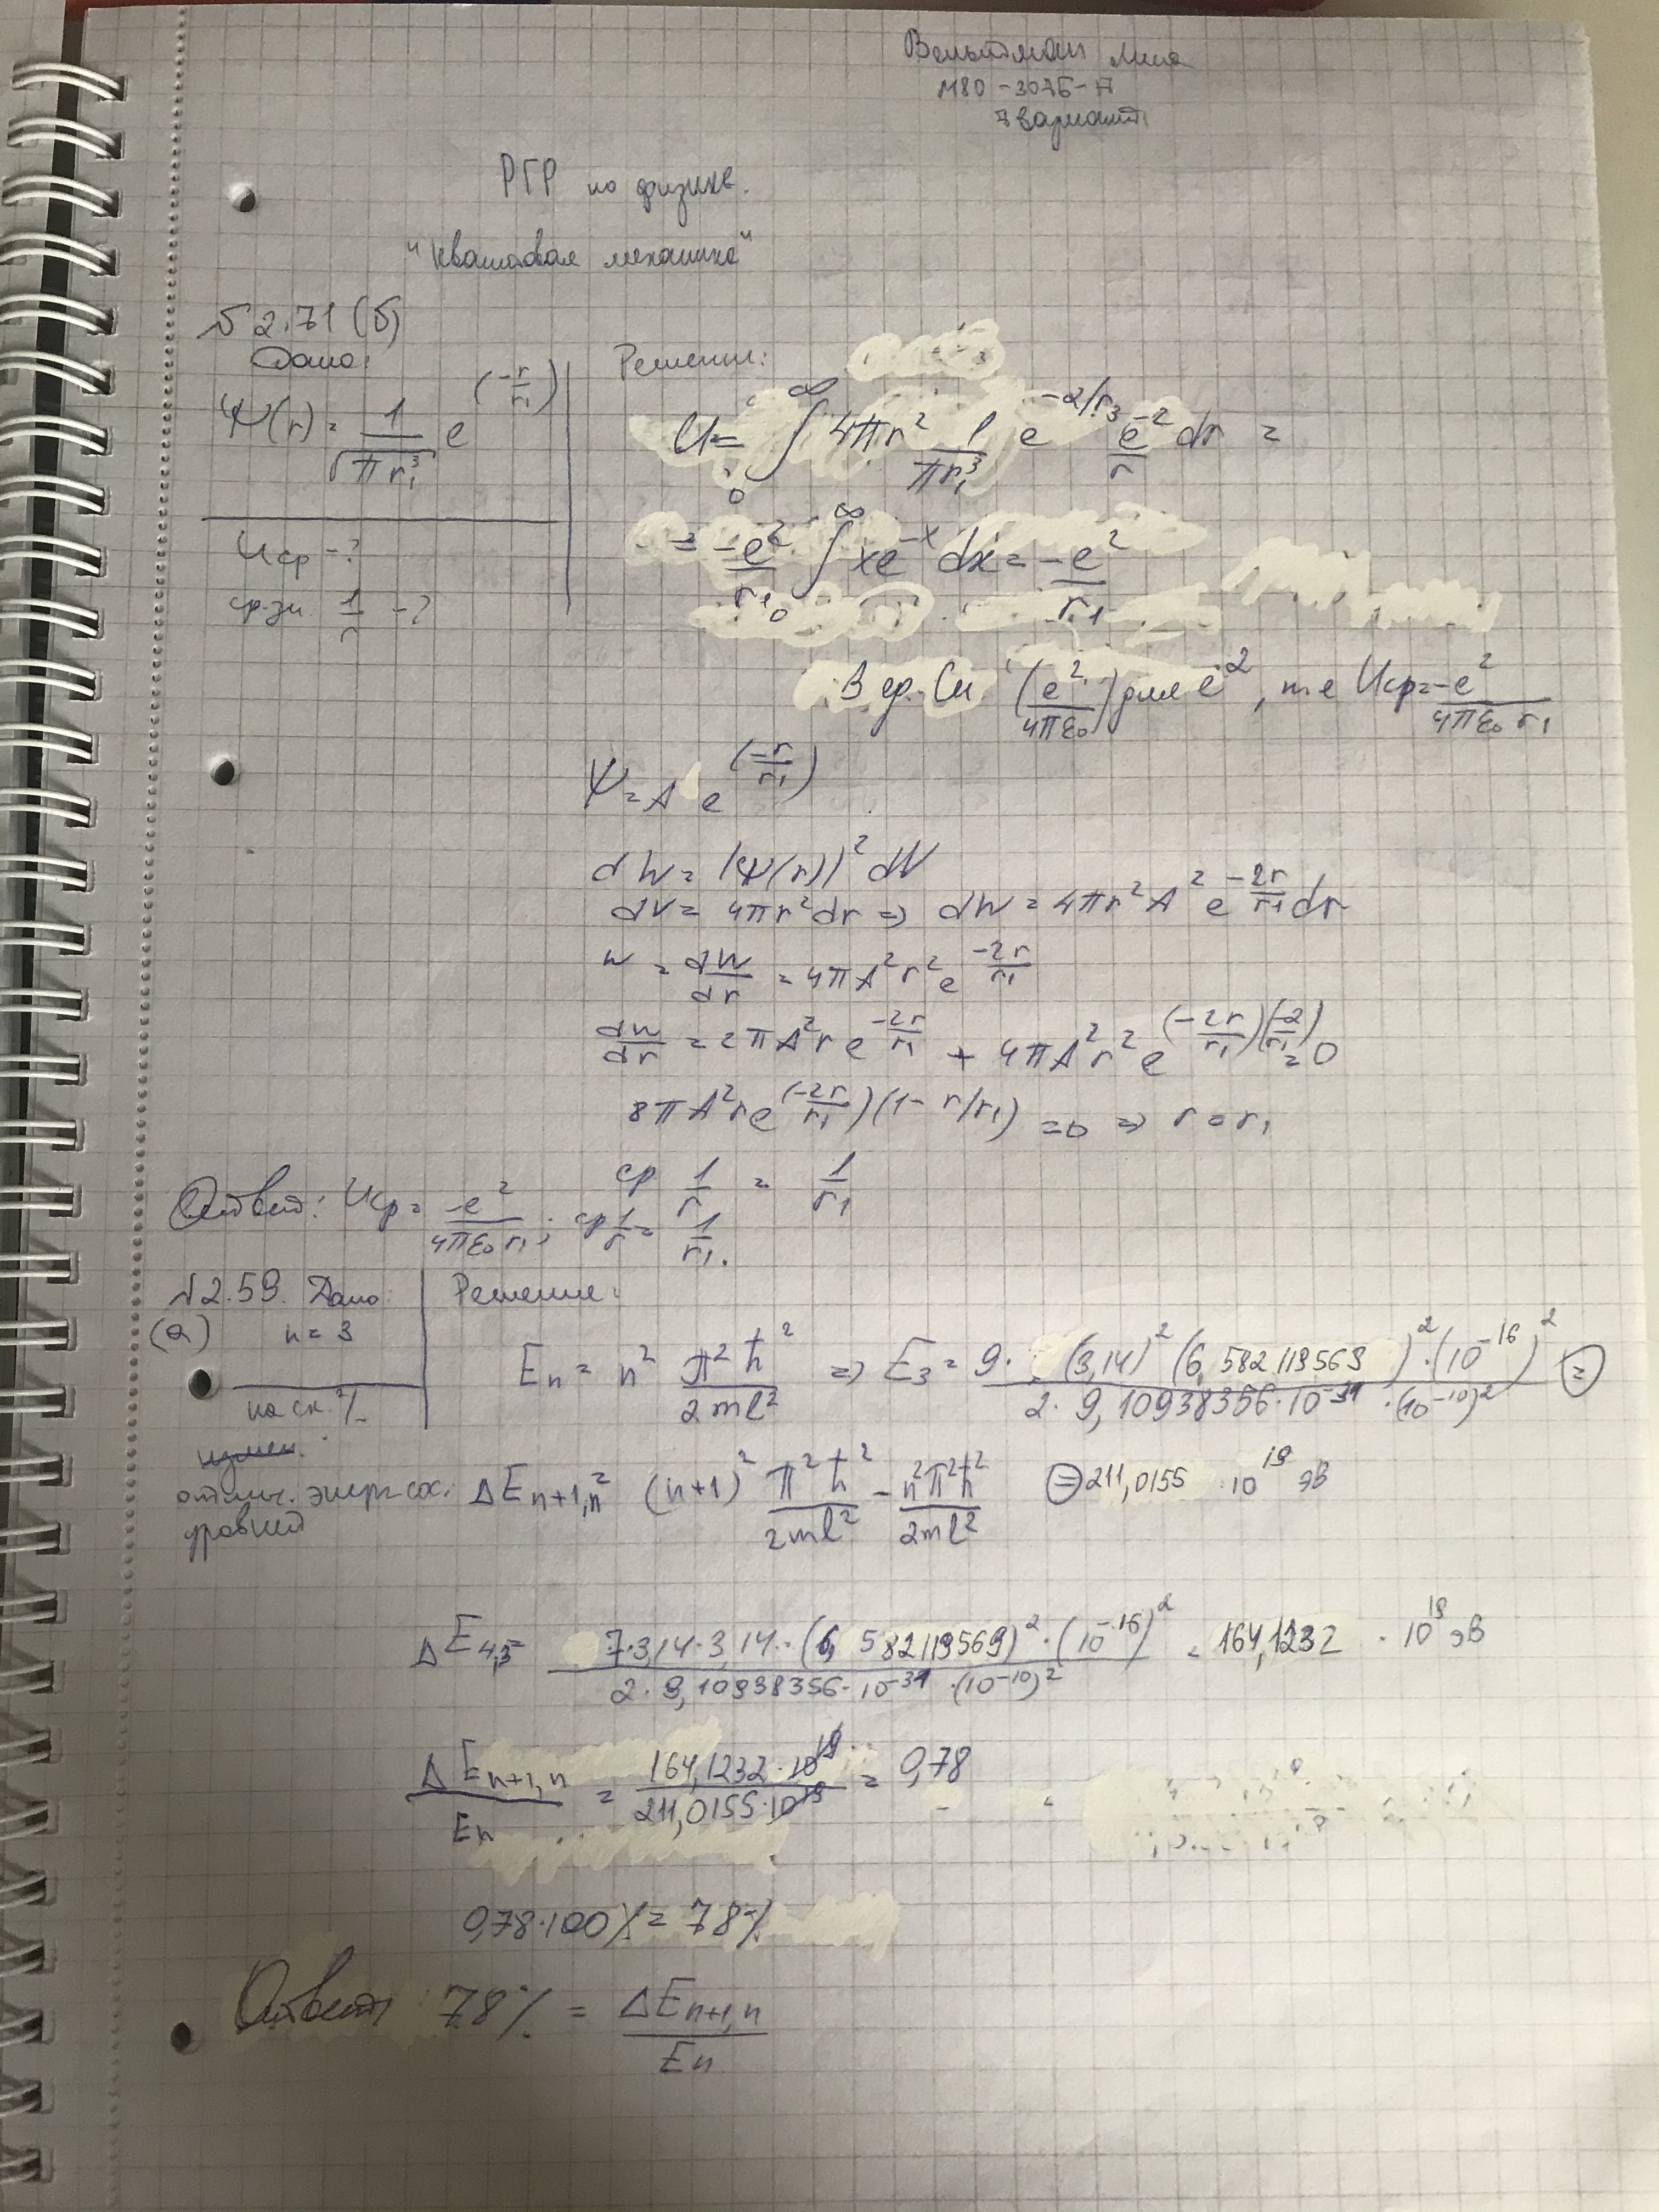 Вельтман Лина
М80-307Б-А
7 вариант
РГР по физике.
"Квантовая механика"
№ 2.71 (б)
Дано:
Ψ(r) = 1/√(πr₁³) e^(-r/r₁)
Uср -?
ср.зн. 1/r -?
Решение:
U = ∫₀^∞ 4πr² 1/(πr₁³) e^(-2/r₃) e^-2/r dr =
= -e²/r₁ ∫₀^∞ xe^-x dx = -e²/r₁
В ер. Си (e²/4πε₀) для e², т е Uср = -e²/(4πε₀ r₁)
Ψ = A e^(-r/r₁)
dW = |Ψ(r)|² dV
dV = 4πr²dr => dW = 4πr²A² e^(-2r/r₁) dr
w = dW/dr = 4πA²r² e^(-2r/r₁)
dw/dr = 2πA²r e^(-2r/r₁) + 4πA²r² e^(-2r/r₁)(-2/r₁) = 0
8πA²r e^(-2r/r₁)(1 - r/r₁) = 0 => r = r₁
ср 1/r = 1/r₁
Ответ: Uср = -e²/(4πε₀ r₁); ср 1/r = 1/r₁.
№2.59. Дано:
(а) n = 3
на ск. %
отлич. энерг. сос.
уровней
Решение:
Eₙ = n² π²ħ²/2ml² => E₃ = 9·(3,14)²(6,582119569)²·(10⁻¹⁶)²/2·9,10938356·10⁻³¹·(10⁻¹⁰)² =
ΔEₙ₊₁,ₙ = (n+1)² π²ħ²/2ml² - n²π²ħ²/2ml² = 211,0155 · 10¹⁹ эВ
ΔE₄,₃ = 7·3,14·3,14·(6,582119569)²·(10⁻¹⁶)²/2·9,10938356·10⁻³¹·(10⁻¹⁰)² = 164,1232 · 10¹⁹ эВ
ΔEₙ₊₁,ₙ/Eₙ = 164,1232·10¹⁹/211,0155·10¹⁹ = 0,78
0,78·100% = 78%
Ответ: 78% = ΔEₙ₊₁,ₙ/Eₙ